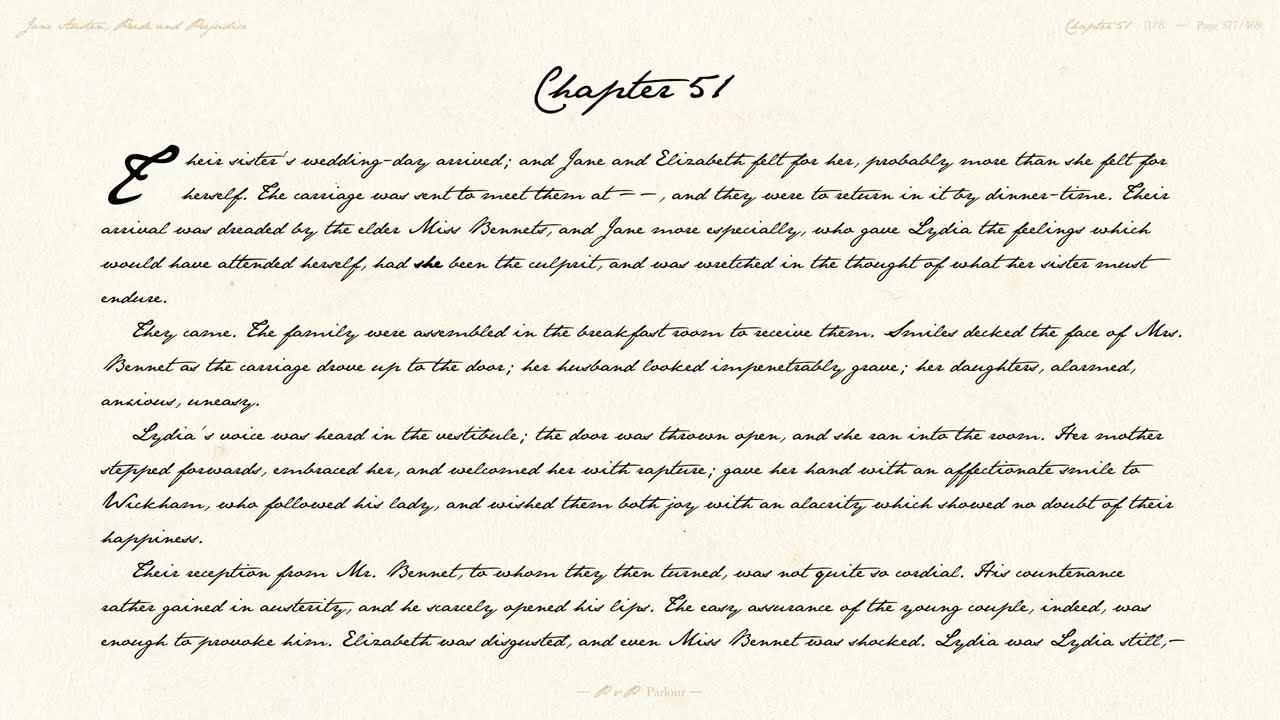 Jane Austen, Pride and Prejudice
Chapter 51 (1/8) — Page 377/469
Chapter 51
Their sister's wedding-day arrived; and Jane and Elizabeth felt for her, probably more than she felt for
herself. The carriage was sent to meet them at — —, and they were to return in it by dinner-time. Their
arrival was dreaded by the elder Miss Bennets, and Jane more especially, who gave Lydia the feelings which
would have attended herself, had she been the culprit, and was wretched in the thought of what her sister must
endure.
They came. The family were assembled in the breakfast room to receive them. Smiles decked the face of Mrs.
Bennet as the carriage drove up to the door; her husband looked impenetrably grave; her daughters, alarmed,
anxious, uneasy.
Lydia's voice was heard in the vestibule; the door was thrown open, and she ran into the room. Her mother
stepped forwards, embraced her, and welcomed her with rapture; gave her hand with an affectionate smile to
Wickham, who followed his lady, and wished them both joy with an alacrity which showed no doubt of their
happiness.
Their reception from Mr. Bennet, to whom they then turned, was not quite so cordial. His countenance
rather gained in austerity, and he scarcely opened his lips. The easy assurance of the young couple, indeed, was
enough to provoke him. Elizabeth was disgusted, and even Miss Bennet was shocked. Lydia was Lydia still;—
— P & P Parlour —